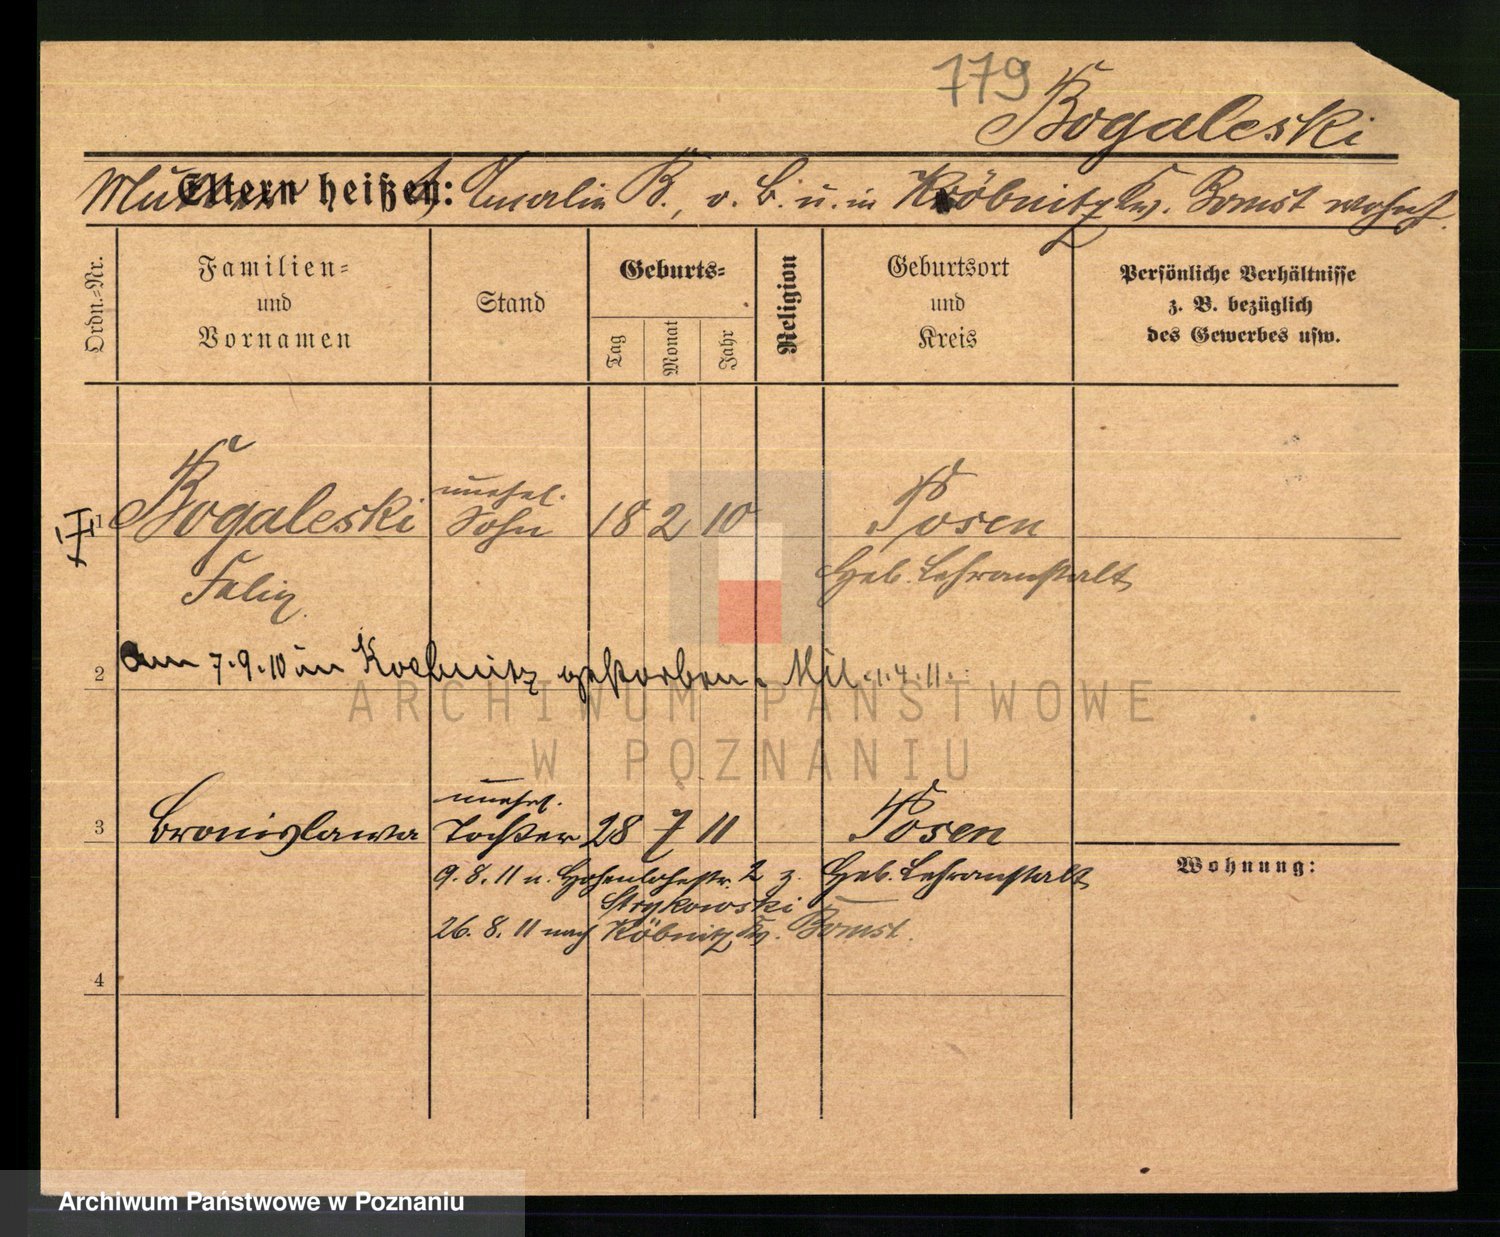 779
Bogaleski
Eltern heißen:
Mutter Amalie B., o. B. u. in Köbnitz Kr. Bomst wohnt.
Ordn.=Nr.
Familien=
und
Vornamen
Stand
Geburts=
Tag
Monat
Jahr
Religion
Geburtsort
und
Kreis
Persönliche Verhältnisse
z. B. bezüglich
des Gewerbes usw.
1 Bogaleski unehel. Sohn 18 2 10 Posen
Felix Heb. Lehranstalt
2 Am 7.9.10 in Koebnitz gestorben. Mil. 1.4.11.
3 Bronislawa unehel. Tochter 28 7 11 Posen
9.8.11 n. Hohenlohestr. 2 z. Heb. Lehranstalt
Strykowski
26.8.11 nach Köbnitz Kr. Bomst.
Wohnung:
4
ARCHIWUM PAŃSTWOWE
W POZNANIU
Archiwum Państwowe w Poznaniu